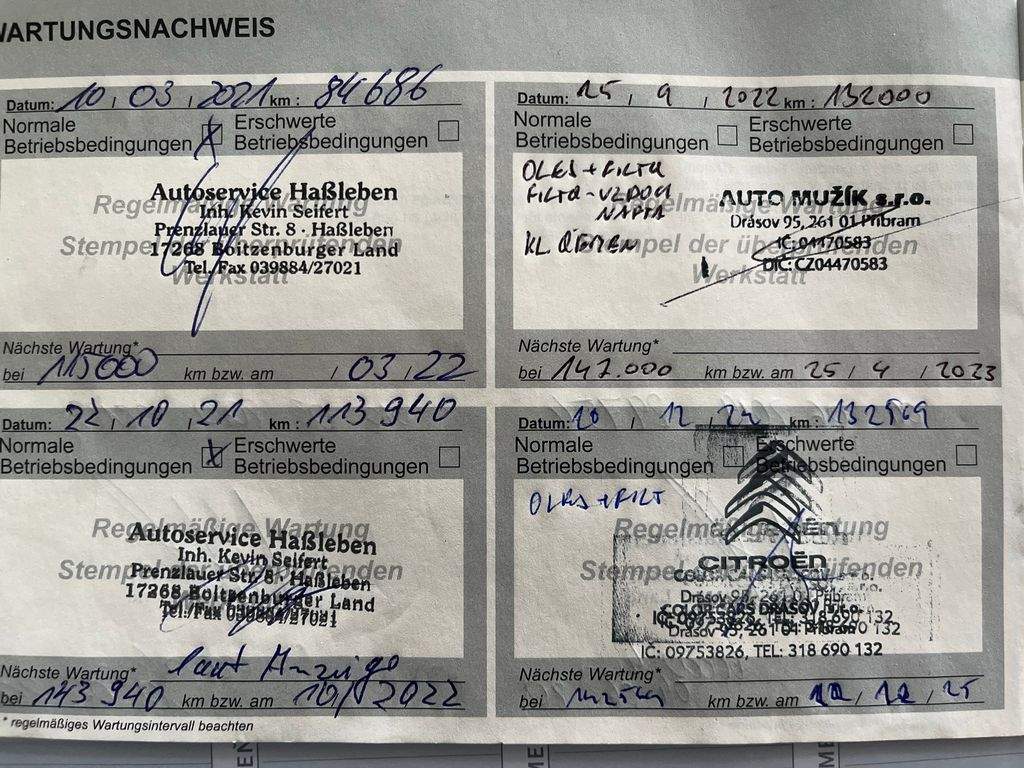 WARTUNGSNACHWEIS
Datum: 10 / 03 / 2021 km : 84686
Normale Betriebsbedingungen
Erschwerte Betriebsbedingungen
Regelmäßige Wartung
Stempel der überprüfenden
Werkstatt
Autoservice Haßleben
Inh. Kevin Seifert
Prenzlauer Str. 8 · Haßleben
17268 Boitzenburger Land
Tel./Fax 039884/27021
Nächste Wartung*
bei 115000 km bzw. am / 03 / 22
Datum: 25 / 9 / 2022 km : 132000
Normale Betriebsbedingungen
Erschwerte Betriebsbedingungen
OLEJ + FILTR
NAFTA
Regelmäßige Wartung
Stempel der überprüfenden
Werkstatt
AUTO MUŽÍK s.r.o.
Drásov 95, 261 01 Příbram
IČ: 04470583
DIČ: CZ04470583
Nächste Wartung*
bei 147.000 km bzw. am 25 / 9 / 2023
Datum: 22 / 10 / 21 km : 113 940
Normale Betriebsbedingungen
Erschwerte Betriebsbedingungen
Regelmäßige Wartung
Stempel der überprüfenden
Autoservice Haßleben
Inh. Kevin Seifert
Prenzlauer Str. 8 · Haßleben
17268 Boitzenburger Land
Tel./Fax 039884/27021
Nächste Wartung* laut Anzeige
bei 143 940 km bzw. am 10 / 2022
Datum: / 12 / km : 132569
Normale Betriebsbedingungen
Erschwerte Betriebsbedingungen
OLEJ + FILT
Regelmäßige Wartung
Stempel der überprüfenden
CITROËN
COLOR CARS DRÁSOV s.r.o.
Drásov 95, 261 01 Příbram
IČ: 09753826, TEL: 318 690 132
Nächste Wartung*
bei km bzw. am / 12 / 25
* regelmäßiges Wartungsintervall beachten